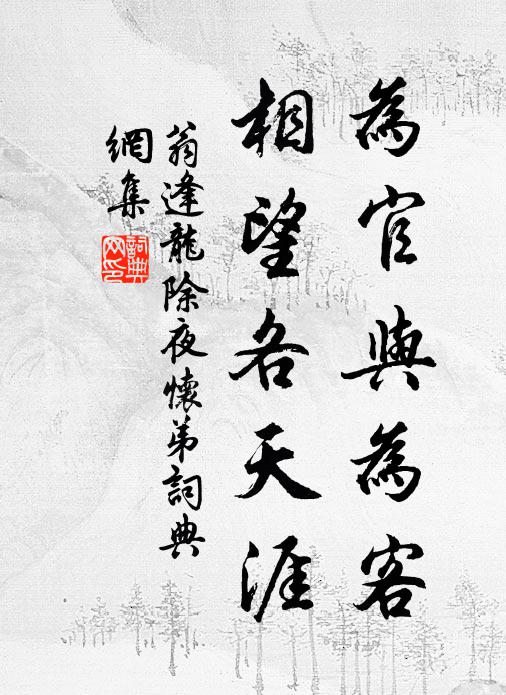 為官與為客
相望各天涯
翁逢龍除夜懷弟詞典
網集
詞典網印